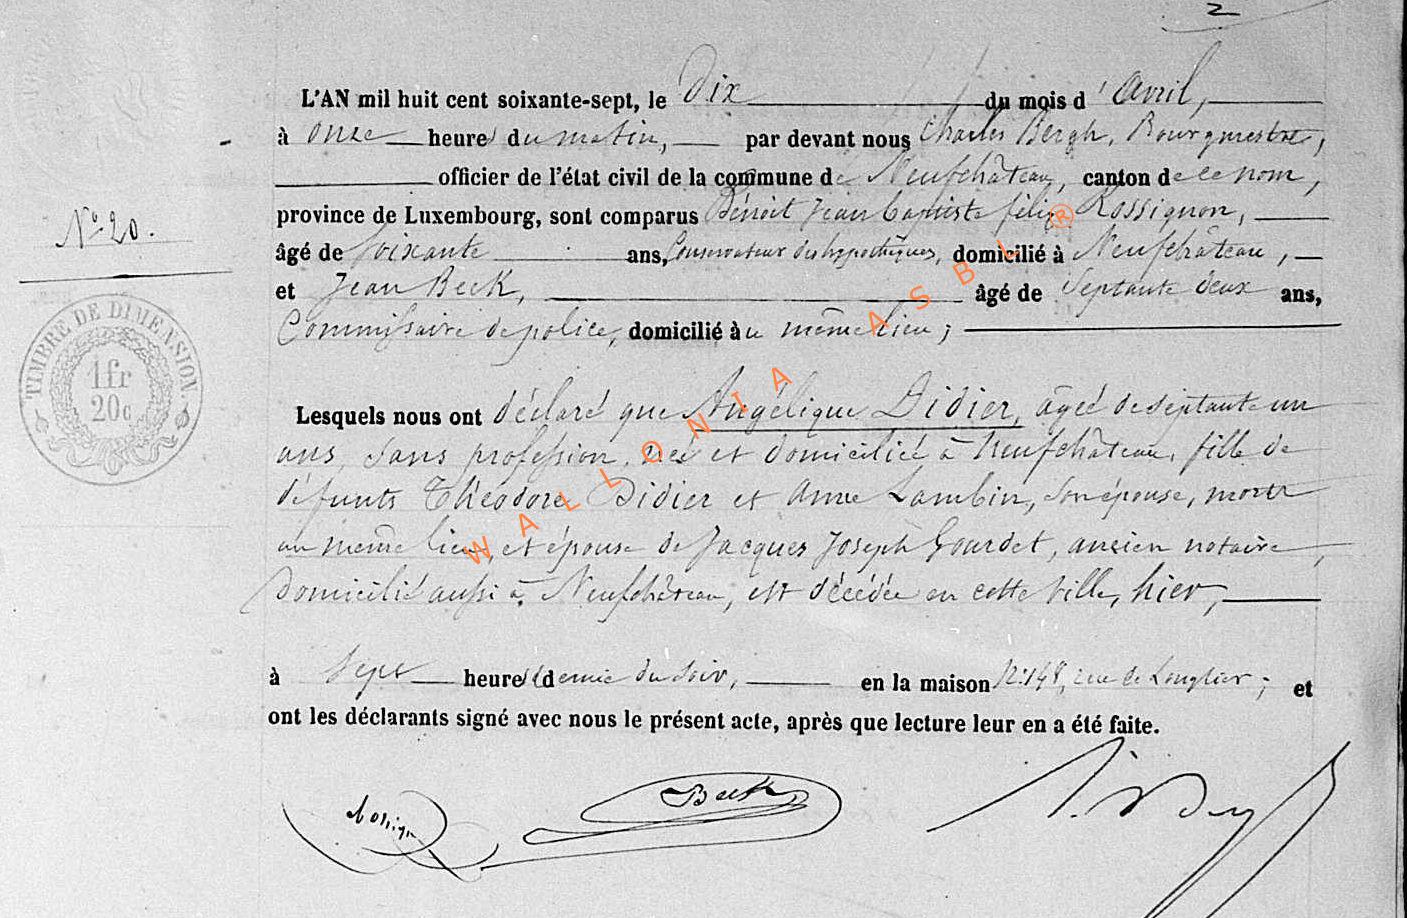 2
L'AN mil huit cent soixante-sept, le Dix du mois d'Avril,
à onze heures du matin, par devant nous Charles Bergh, Bourgmestre,
officier de l'état civil de la commune de Neufchâteau, canton de ce nom,
N° 20.
province de Luxembourg, sont comparus Bénoit Jean Baptiste félix Rossignon,
âgé de soixante ans, Conservateur des hypothèques, domicilié à Neufchâteau,
et Jean Beck, âgé de Septante deux ans,
Commissaire de police, domicilié au même lieu;
TIMBRE DE DIMENSION.
1 fr
20 c
Lesquels nous ont déclaré que Angélique Didier, âgée de septante un
ans, sans profession, née et domiciliée à Neufchâteau, fille de
défunts Théodore Didier et Anne Lambin, son épouse, morts
au même lieu, et épouse de Jacques Joseph Gourdet, ancien notaire,
domicilié aussi à Neufchâteau, est décédée en cette ville, hier,
à Sept heures et demie du soir, en la maison N° 148, rue de Longlier; et
ont les déclarants signé avec nous le présent acte, après que lecture leur en a été faite.
Beck
WALLONIA ASBL ®